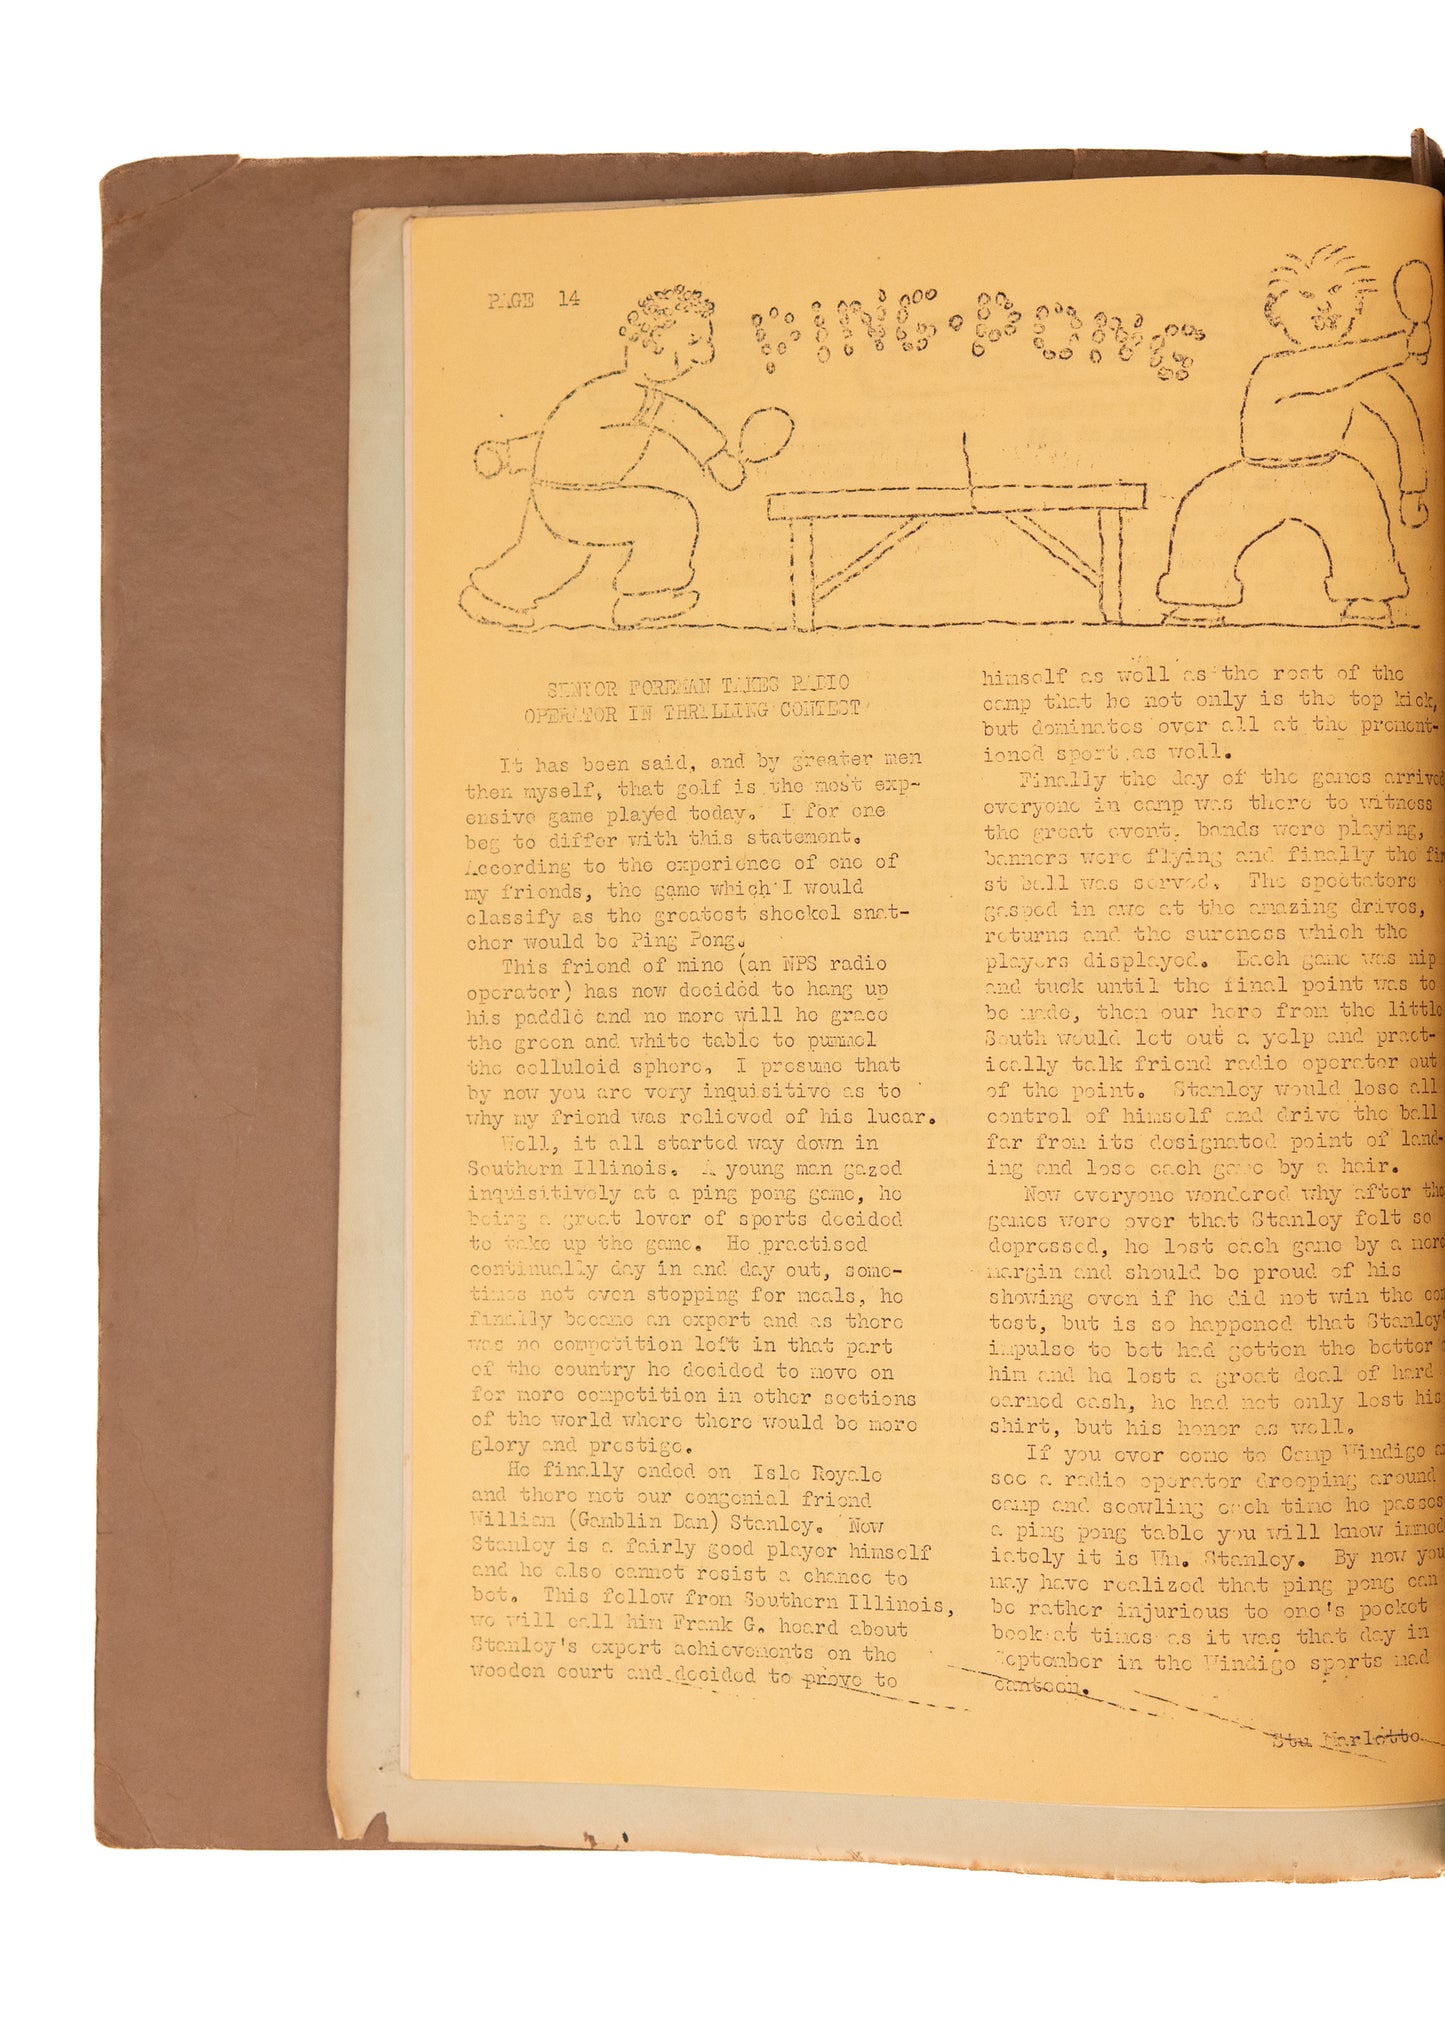 PAGE 14
PING-PONG
SENIOR FOREMAN TAKES RADIO
OPERATOR IN THRILLING CONTEST
It has been said, and by greater men
then myself, that golf is the most exp-
ensive game played today. I for one
beg to differ with this statement.
According to the experience of one of
my friends, the game which I would
classify as the greatest sheckel snat-
cher would be Ping Pong.
This friend of mine (an NPS radio
operator) has now decided to hang up
his paddle and no more will he grace
the green and white table to pummel
the celluloid sphere. I presume that
by now you are very inquisitive as to
why my friend was relieved of his lucar.
Well, it all started way down in
Southern Illinois. A young man gazed
inquisitively at a ping pong game, he
being a great lover of sports decided
to take up the game. He practised
continually day in and day out, some-
times not even stopping for meals, he
finally became an expert and as there
was no competition left in that part
of the country he decided to move on
for more competition in other sections
of the world where there would be more
glory and prestige.
He finally ended on Isle Royale
and there met our congenial friend
William (Gamblin Dan) Stanley. Now
Stanley is a fairly good player himself
and he also cannot resist a chance to
bet. This fellow from Southern Illinois,
we will call him Frank G. heard about
Stanley's expert achievements on the
wooden court and decided to prove to
himself as well as the rest of the
camp that he not only is the top kick,
but dominates over all at the prement-
ioned sport as well.
Finally the day of the games arrived
everyone in camp was there to witness
the great event. bands were playing,
banners were flying and finally the fir
st ball was served. The spectators
gasped in awe at the amazing drives,
returns and the sureness which the
players displayed. Each game was nip
and tuck until the final point was to
be made, then our hero from the little
South would let out a yelp and pract-
ically talk friend radio operator out
of the point. Stanley would lose all
control of himself and drive the ball
far from its designated point of land-
ing and lose each game by a hair.
Now everyone wondered why after the
games were over that Stanley felt so
depressed, he lost each game by a mere
margin and should be proud of his
showing even if he did not win the con
test, but is so happened that Stanley'
impulse to bet had gotten the better
him and he lost a great deal of hard
earned cash, he had not only lost his
shirt, but his honor as well.
If you ever come to Camp Windigo a
see a radio operator drooping around
camp and scowling each time he passes
a ping pong table you will know immed
iately it is Wm. Stanley. By now you
may have realized that ping pong can
be rather injurious to one's pocket
book at times as it was that day in
September in the Windigo sports mad
canteen.
Stu Marlotto